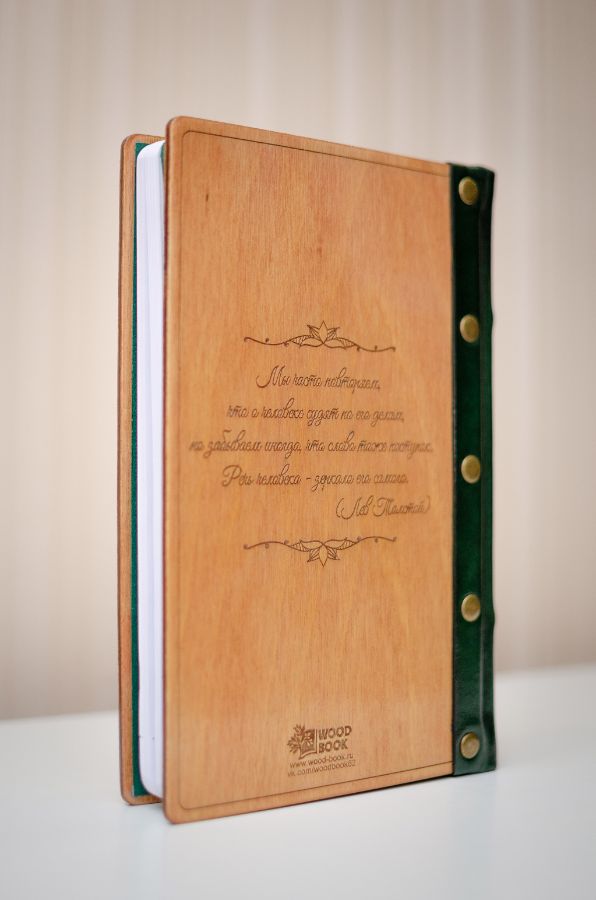 Мы часто повторяем,
что о человеке судят по его делам,
но забываем иногда, что слово тоже поступок.
Речь человека - зеркало его самого.
(Лев Толстой)
WOOD
BOOK
www.wood-book.ru
vk.com/woodbook62